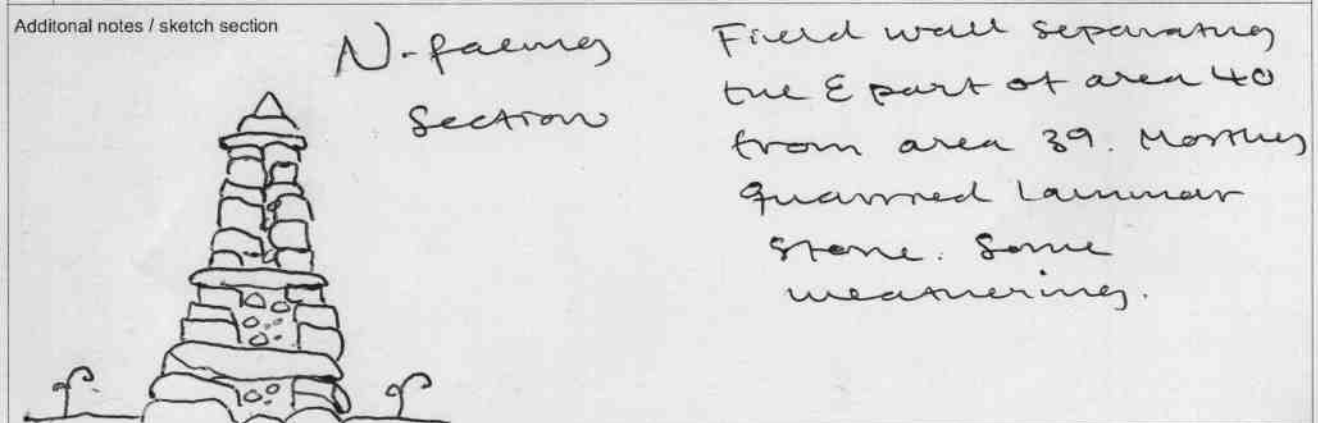 Additonal notes / sketch section
N-facing
Section
Field wall separating
the E part of area 40
from area 39. Mostly
quarried laminar
stone. Some
weathering.